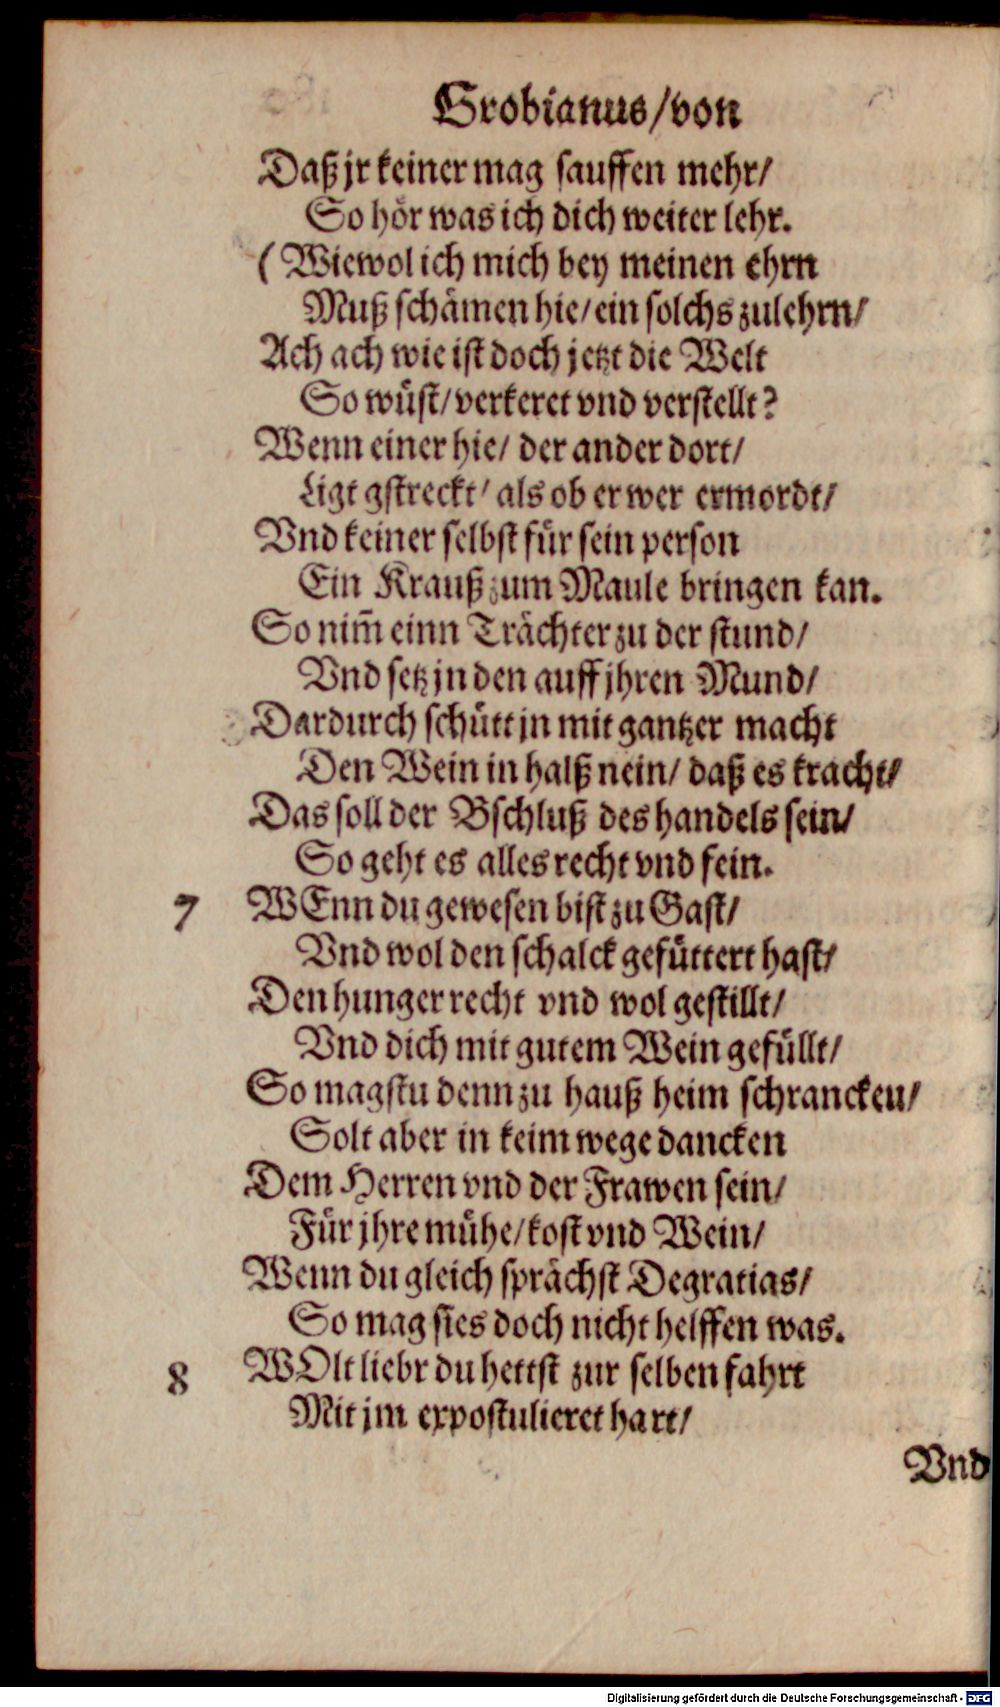 Grobianus/von
Daß jr keiner mag sauffen mehr/
So hör was ich dich weiter lehr.
(Wiewol ich mich bey meinen ehrn
Muß schämen hie/ein solchs zulehrn/
Ach ach wie ist doch jetzt die Welt
So wüst/verkeret vnd verstellt?
Wenn einer hie/ der ander dort/
Ligt gstreckt/ als ob er wer ermordt/
Vnd keiner selbst für sein person
Ein Krauß zum Maule bringen kan.
So nim̄ einn Trächter zu der stund/
Vnd setz jn den auff jhren Mund/
Dardurch schütt jn mit gantzer macht
Den Wein in halß nein/ daß es kracht/
Das soll der Bschluß des handels sein/
So geht es alles recht vnd fein.
7 WEnn du gewesen bist zu Gast/
Vnd wol den schalck gefüttert hast/
Den hunger recht vnd wol gestillt/
Vnd dich mit gutem Wein gefüllt/
So magstu denn zu hauß heim schrancken/
Solt aber in keim wege dancken
Dem Herren vnd der Frawen sein/
Für jhre mühe/kost vnd Wein/
Wenn du gleich sprächst Degratias/
So mag sies doch nicht helffen was.
8 WOlt liebr du hettst zur selben fahrt
Mit jm expostulieret hart/
Vnd
Digitalisierung gefördert durch die Deutsche Forschungsgemeinschaft - DFG